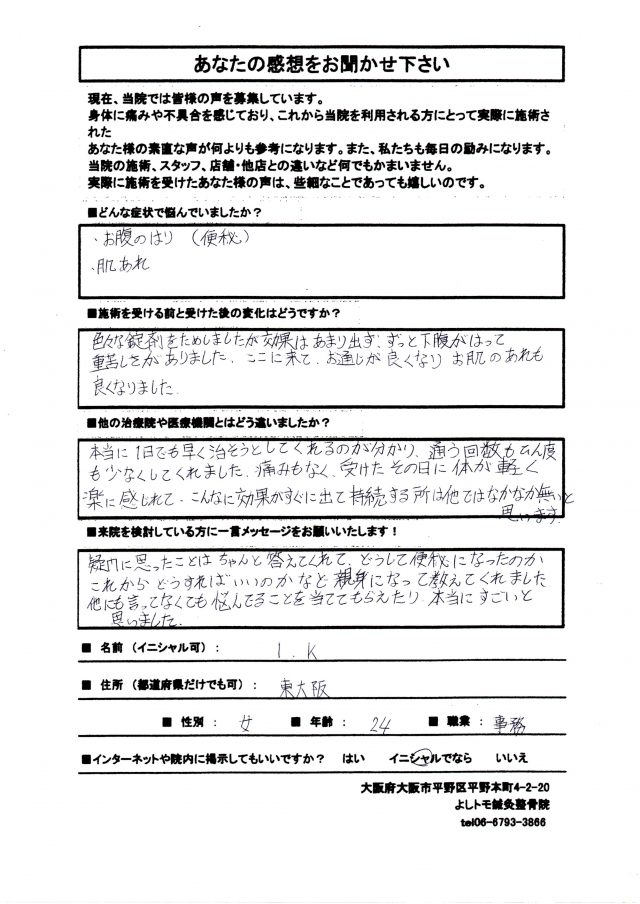 あなたの感想をお聞かせ下さい
現在、当院では皆様の声を募集しています。
身体に痛みや不具合を感じており、これから当院を利用される方にとって実際に施術さ
れた
あなた様の素直な声が何よりも参考になります。また、私たちも毎日の励みになります。
当院の施術、スタッフ、店舗・他店との違いなど何でもかまいません。
実際に施術を受けたあなた様の声は、些細なことであっても嬉しいのです。
■どんな症状で悩んでいましたか？
・お腹のはり （便秘）
・肌あれ
■施術を受ける前と受けた後の変化はどうですか？
色々な錠剤をためしましたが効果はあまり出ず、ずっと下腹がはって
重苦しさがありました。ここに来て、お通じが良くなり お肌のあれも
良くなりました。
■他の治療院や医療機関とはどう違いましたか？
本当に1日でも早く治そうとしてくれるのが分かり、通う回数も
も少なくしてくれました。痛みもなく、受けたその日に体が軽く
楽に感じれて、こんなに効果がすぐに出て持続する所は他ではなかなか無いと
思います。
■来院を検討している方に一言メッセージをお願いいたします！
疑問に思ったことはちゃんと答えてくれて、どうして便秘になったのか
これからどうすればいいのかなど親身になって教えてくれました
他にも言ってなくても悩んでることを当ててもらえたり 本当にすごいと
思いました。
■ 名前（イニシャル可）： I．K
■ 住所（都道府県だけでも可）： 東大阪
■ 性別： 女 ■ 年齢： 24 ■ 職業： 事務
■インターネットや院内に掲示してもいいですか？ はい イニシャルでなら いいえ
大阪府大阪市平野区平野本町4-2-20
よしトモ鍼灸整骨院
tel06-6793-3866